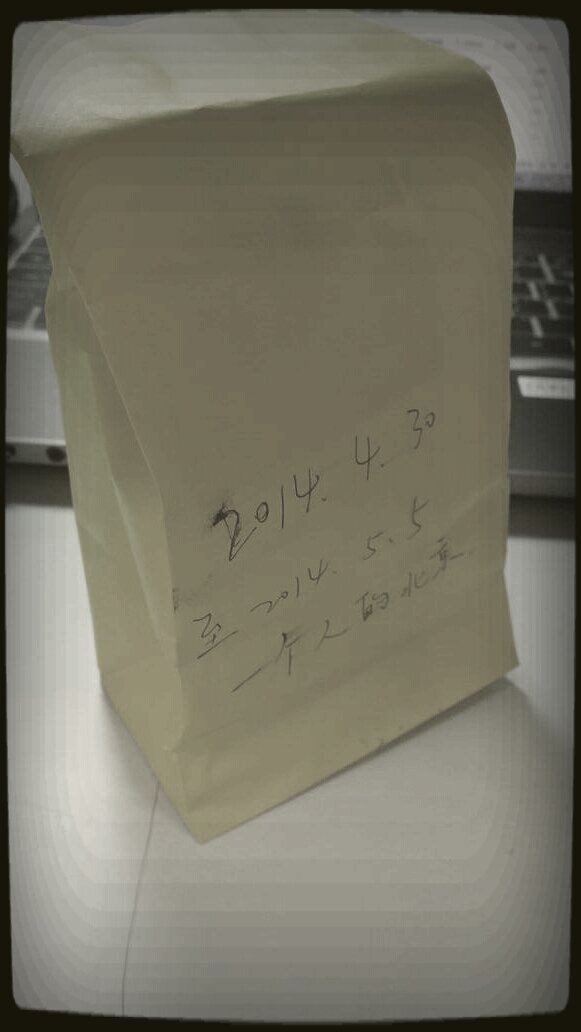 2014.4.30
至 2014.5.5
一个人的北京